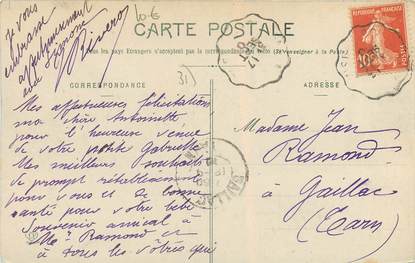 Je vous
embrasse
affectueusement
10 €
CARTE POSTALE
Tous les pays Etrangers n'acceptent pas la correspondance au verso (Se renseigner à la Poste)
31)
CORRESPONDANCE
ADRESSE
Mes affectueuses félicitations
ma chère Antoinette
pour l'heureuse venue
de votre petite Gabrielle
Mes meilleurs souhaits
de prompt rétablissement
pour vous et de bonne
santé pour votre bébé
Souvenir amical à
Mr Ramond et
à tous les vôtres que
Madame Jean
Ramond
à
Gaillac
(Tarn)
GAILLAC
10